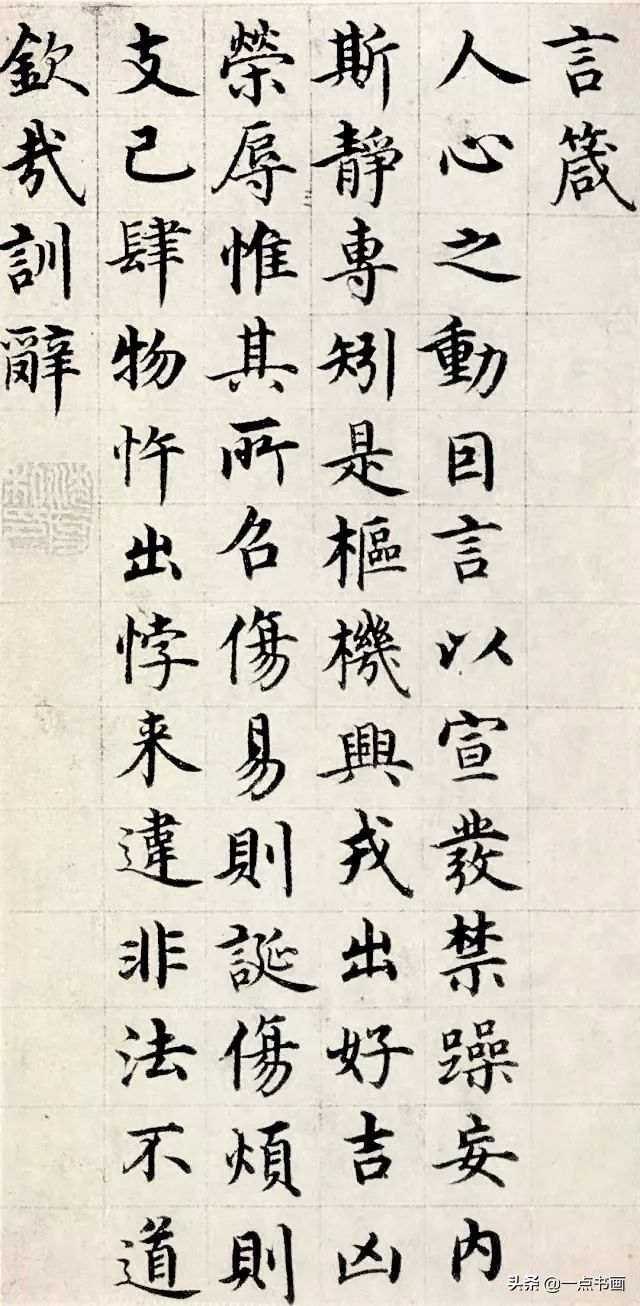 言箴
人心之動因言以宣發禁躁妄内
斯靜專矧是樞機興戎出好吉凶
榮辱惟其所召傷易則誕傷煩則
支己肆物忤出悖来違非法不道
欽哉訓辭
头条@一点书画